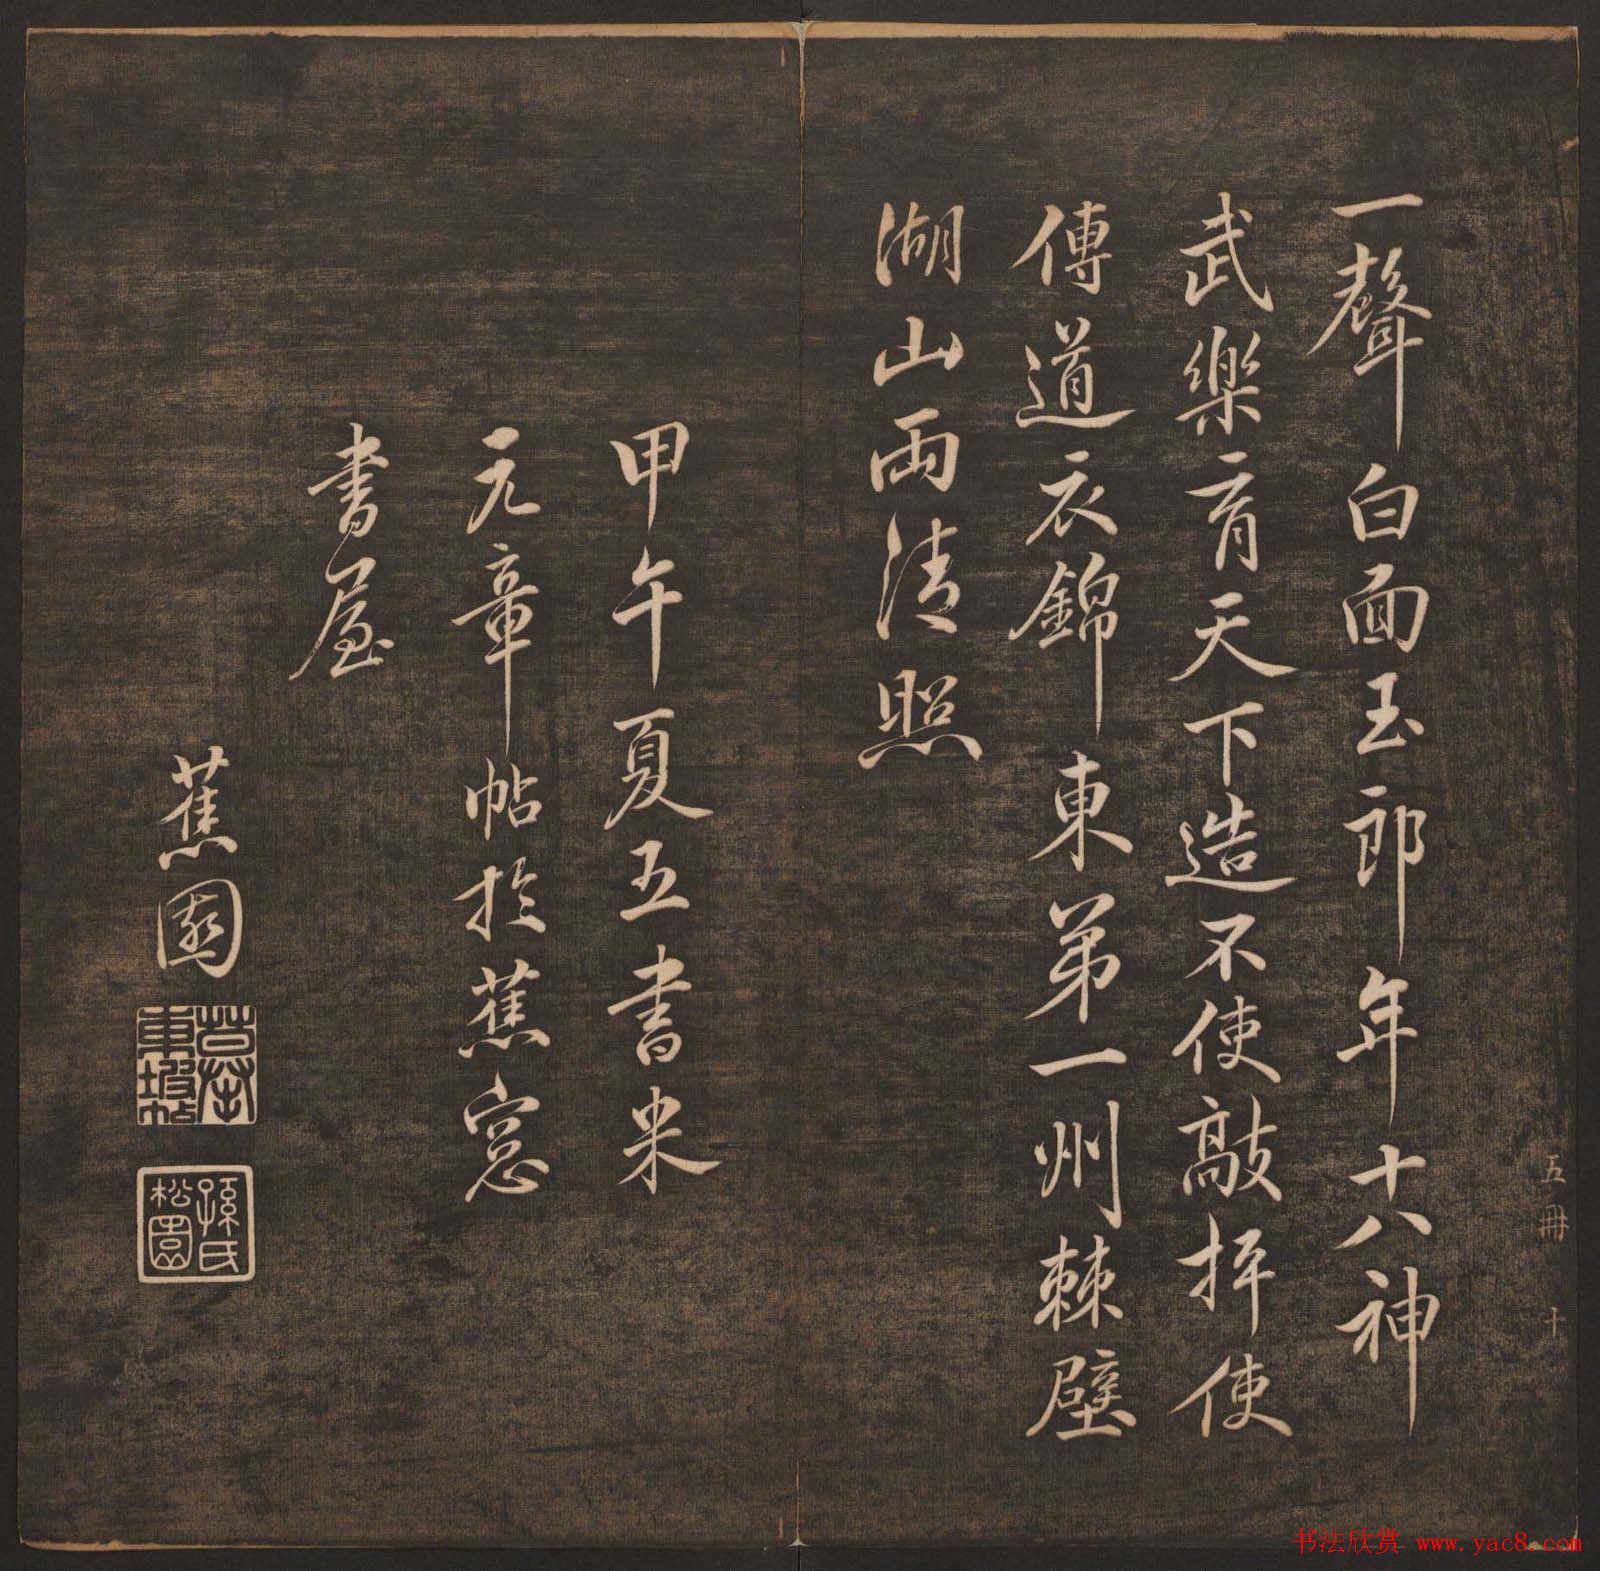 一聲白面玉郎年十八神
武樂育天下造不使敲抨使
傳道衣錦東第一州棘壁
湖山兩清照
甲午夏五書米
元章帖於蕉窓
書屋
蕉園
孫氏
松園
五冊 十
书法欣赏 www.yac8.com